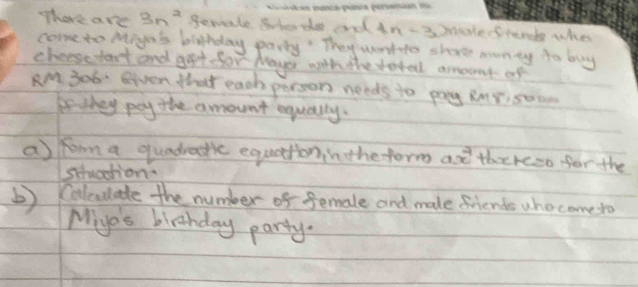 There are 3n² female friends and 4n - 3 male friends who
come to Miya's birthday party. They want to share money to buy
cheese tart and gift for Maya with the total amount of
RM 306. Given that each person needs to pay RM 8.50
if they pay the amount equally.
a) Form a quadratic equation, in the form ax² + bx + c = 0 for the
situation.
b) Calculate the number of female and male friends who come to
Miya's birthday party.